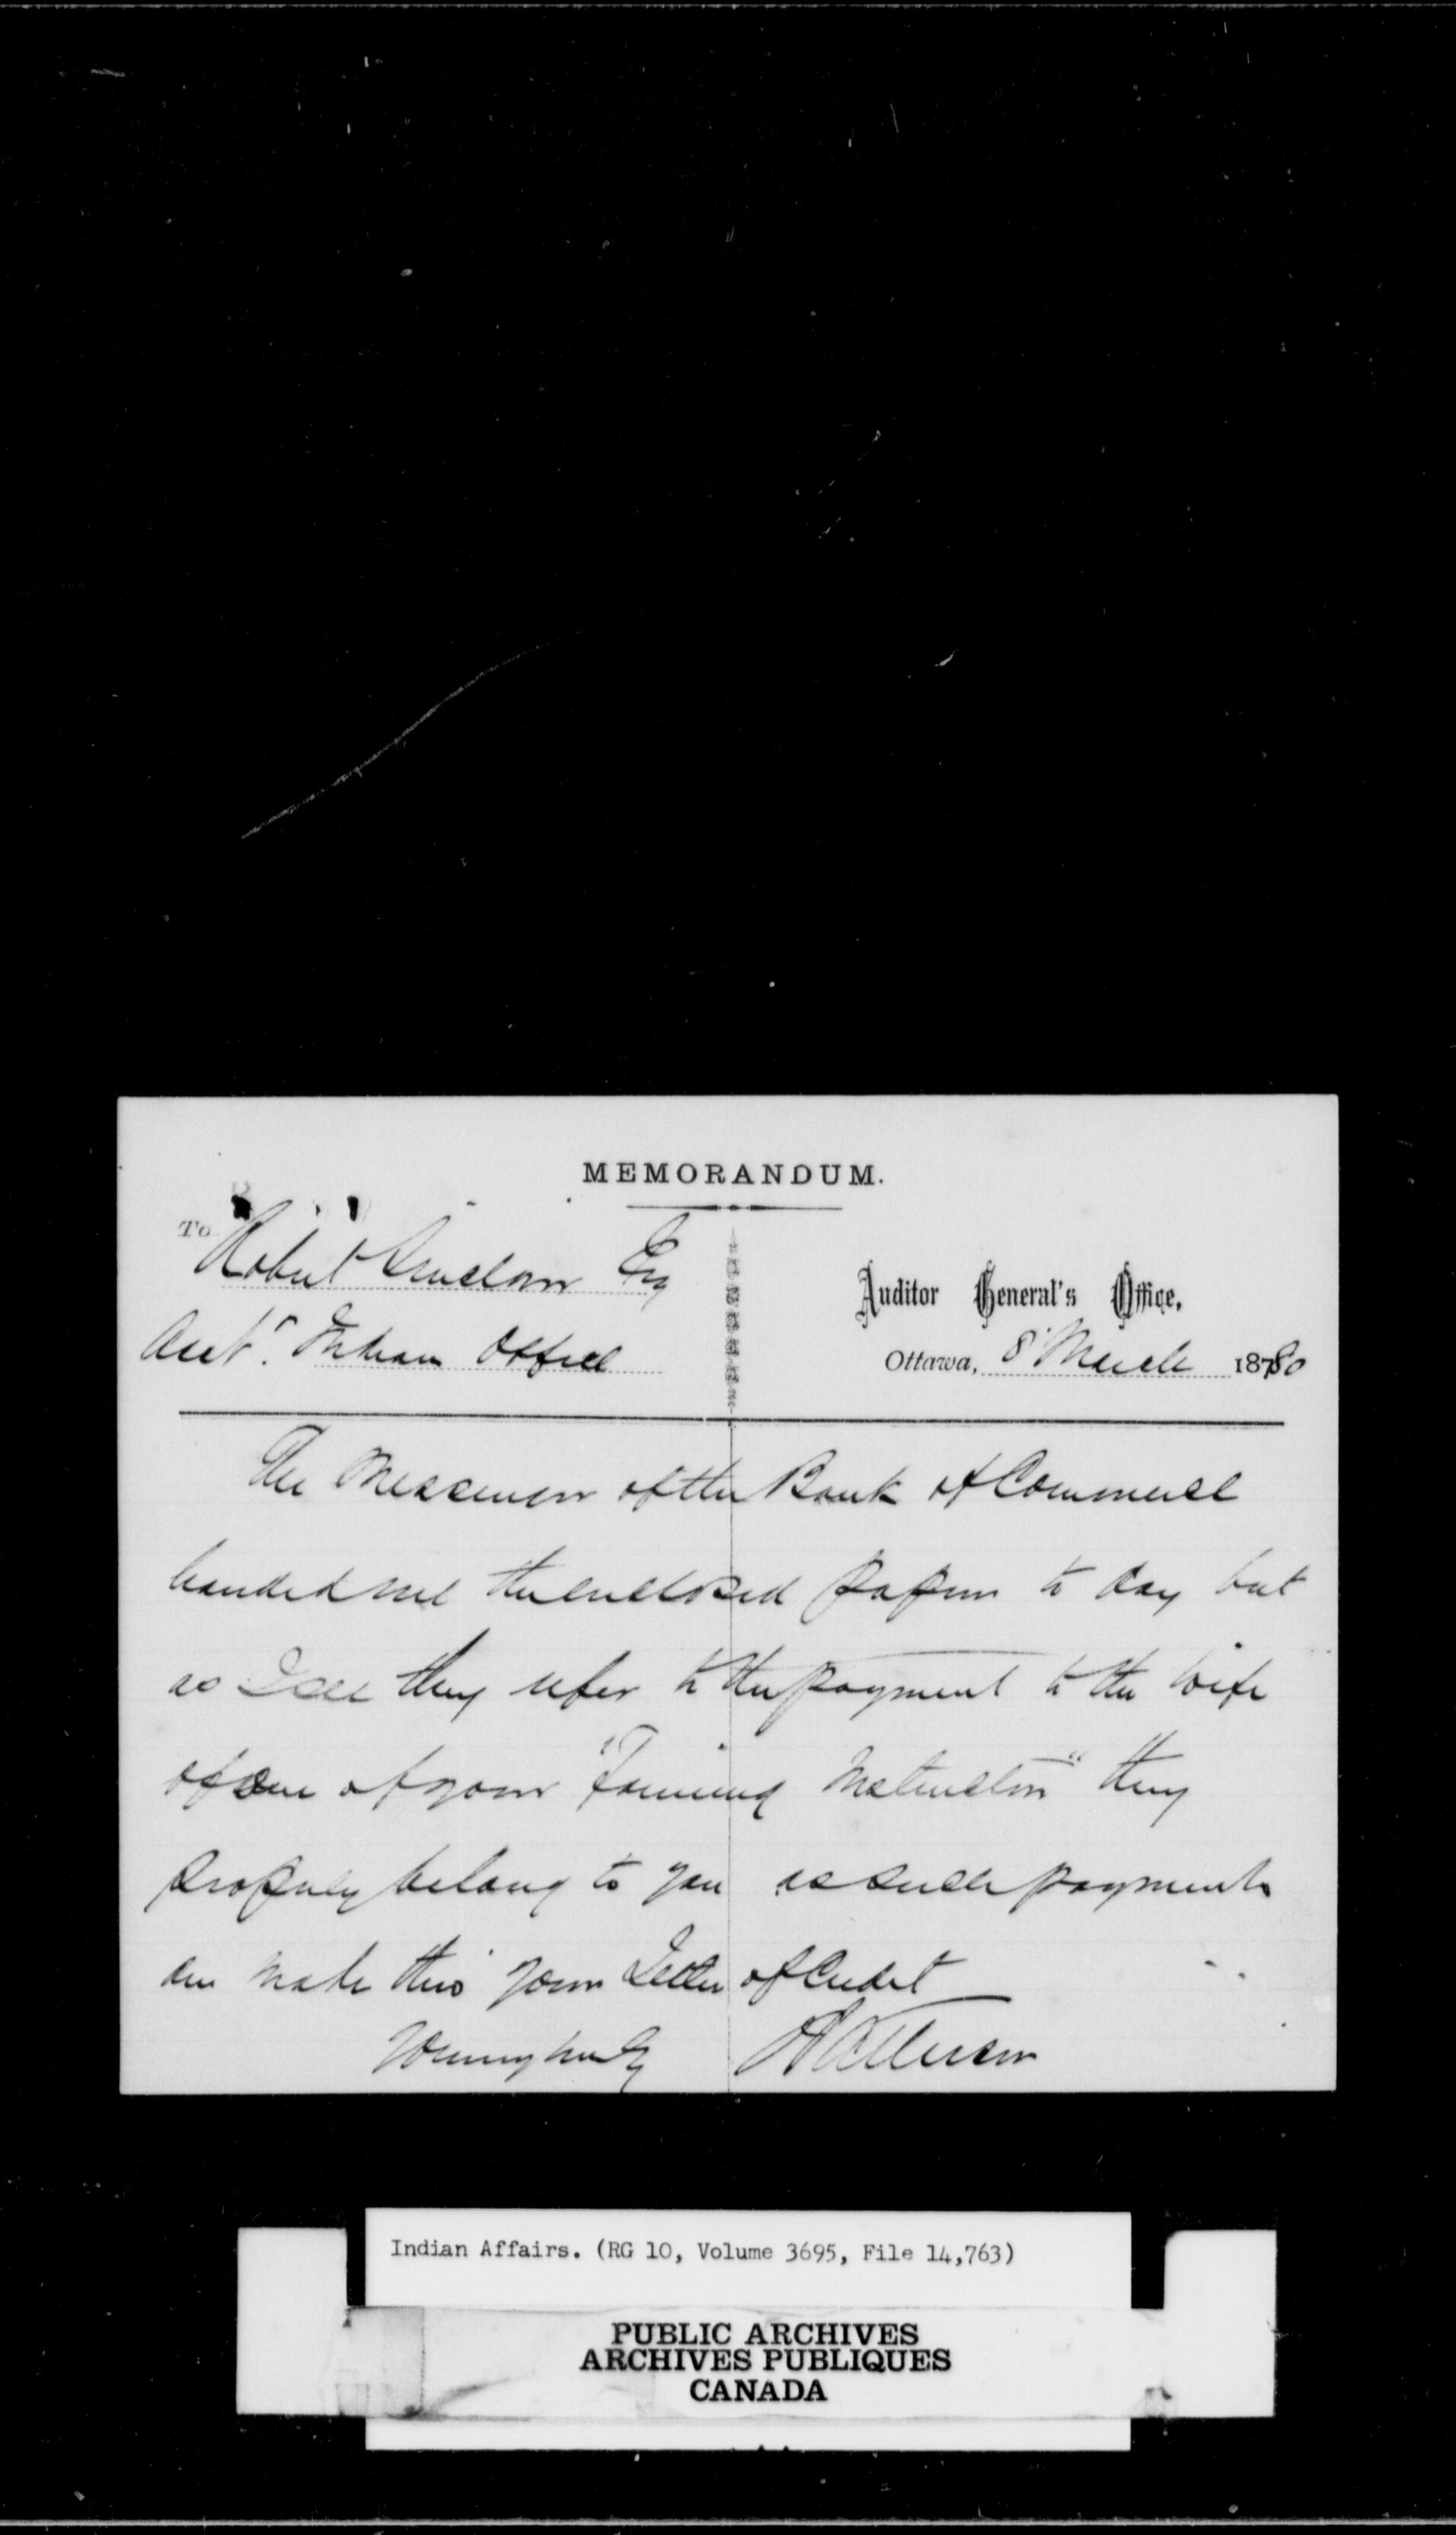 MEMORANDUM.
To Robert Sinclair Esq
Acct. Indian Office
Auditor General's Office,
Ottawa, 8 March 1880
The Messenger of the Bank of Commerce
handed me the enclosed papers to day but
as I see they refer to the payment to the wife
of one of your "Farming Instructors" they
properly belong to you as such payments
are made thro' your Letter of Credit
Yours truly
Indian Affairs. (RG 10, Volume 3695, File 14,763)
PUBLIC ARCHIVES
ARCHIVES PUBLIQUES
CANADA